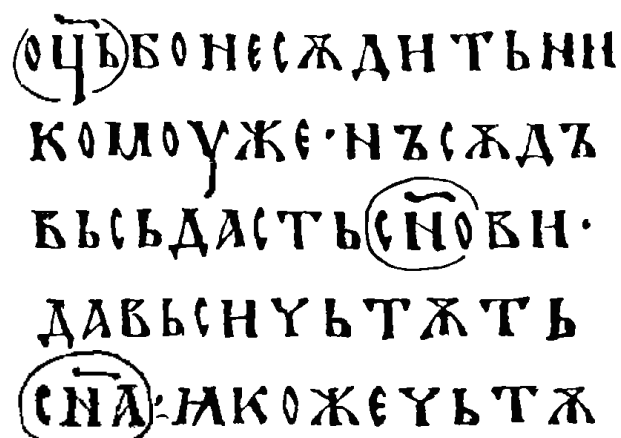 оц҃ьбонесѫдитьни
комоуже·нъсѫдъ
вьсьдастьсн҃ови·
давьсичьтѫть
сн҃а·ꙗкожечьтѫ